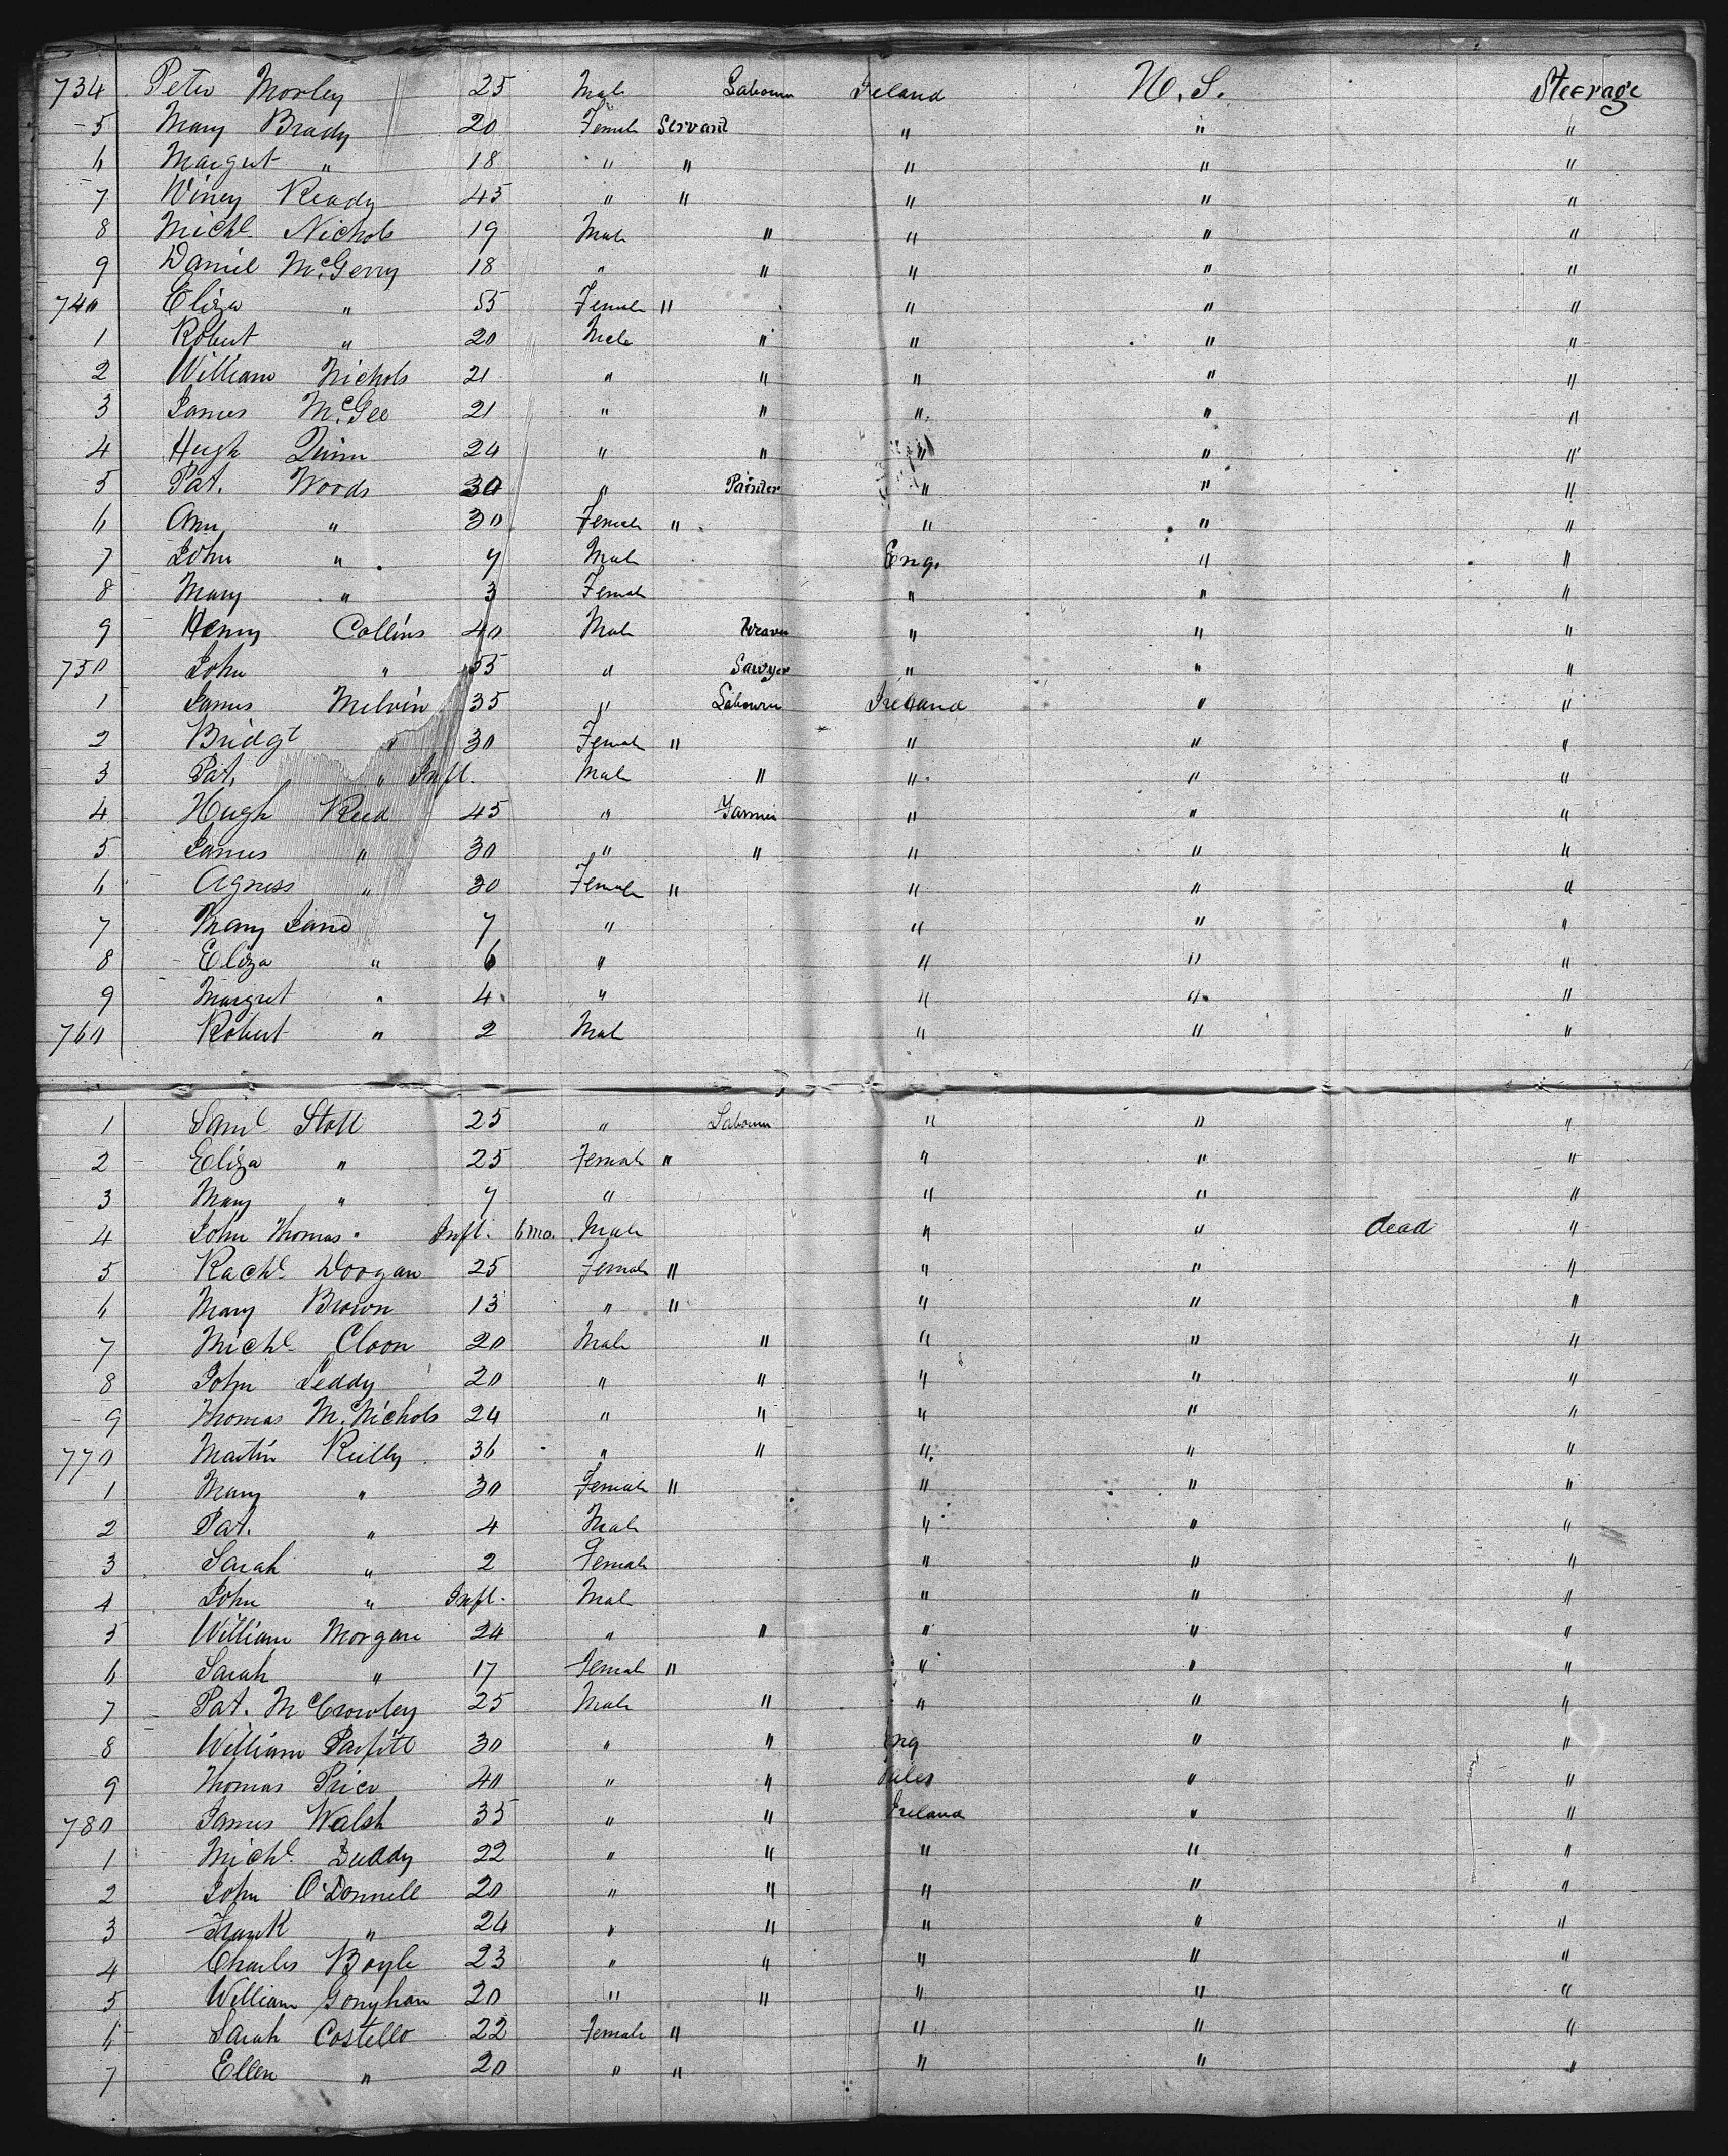 734 Peter Morley 25 Male Labourer Ireland U.S. Steerage
5 Mary Brady 20 Female Servant " " "
6 Margret " 18 " " " " "
7 Winey Ready 45 " " " " "
8 Michl. Nichols 19 Male " " " "
9 Daniel McGerry 18 " " " " "
740 Eliza " 55 Female " " " "
1 Robert " 20 Male " " " "
2 William Nichols 21 " " " " "
3 James McGee 21 " " " " "
4 Hugh Quinn 24 " " " " "
5 Pat. Woods 30 " Painter " " "
6 Ann " 30 Female " " " "
7 John " 7 Male Eng. " "
8 Mary " 3 Female " " "
9 Henry Collins 40 Male Weaver " " "
750 John " 55 " Sawyer " " "
1 James Melvin 35 " Labourer Ireland " "
2 Bridgt " 30 Female " " " "
3 Pat. " Inft. Male " " " "
4 Hugh Reed 45 " Farmer " " "
5 James " 30 " " " " "
6 Agness " 30 Female " " " "
7 Mary Jane 7 " " " "
8 Eliza " 6 " " " "
9 Margret " 4 " " " "
760 Robert " 2 Male " " "
1 Saml Stott 25 " Labourer " " "
2 Eliza " 25 Female " " " "
3 Mary " 7 " " " "
4 John Thomas " Inft. 6 mo. Male " " dead "
5 Rachl. Doogan 25 Female " " " "
6 Mary Brown 13 " " " " "
7 Michl. Cloon 20 Male " " " "
8 John Leddy 20 " " " " "
9 Thomas McNichols 24 " " " " "
770 Martin Reilly 36 " " " " "
1 Mary " 30 Female " " " "
2 Pat. " 4 Male " " "
3 Sarah " 2 Female " " "
4 John " Inft. Male " " "
5 William Morgan 24 " " " " "
6 Sarah " 17 Female " " " "
7 Pat. McCrowley 25 Male " " " "
8 William Parfitt 30 " " Eng " "
9 Thomas Price 40 " " Wales " "
780 James Walsh 35 " " Ireland " "
1 Michl. Duddy 22 " " " " "
2 John O'Donnell 20 " " " " "
3 Frank " 24 " " " " "
4 Charles Boyle 23 " " " " "
5 William Gonyhan 20 " " " " "
6 Sarah Costello 22 Female " " " "
7 Ellen " 20 " " " " "